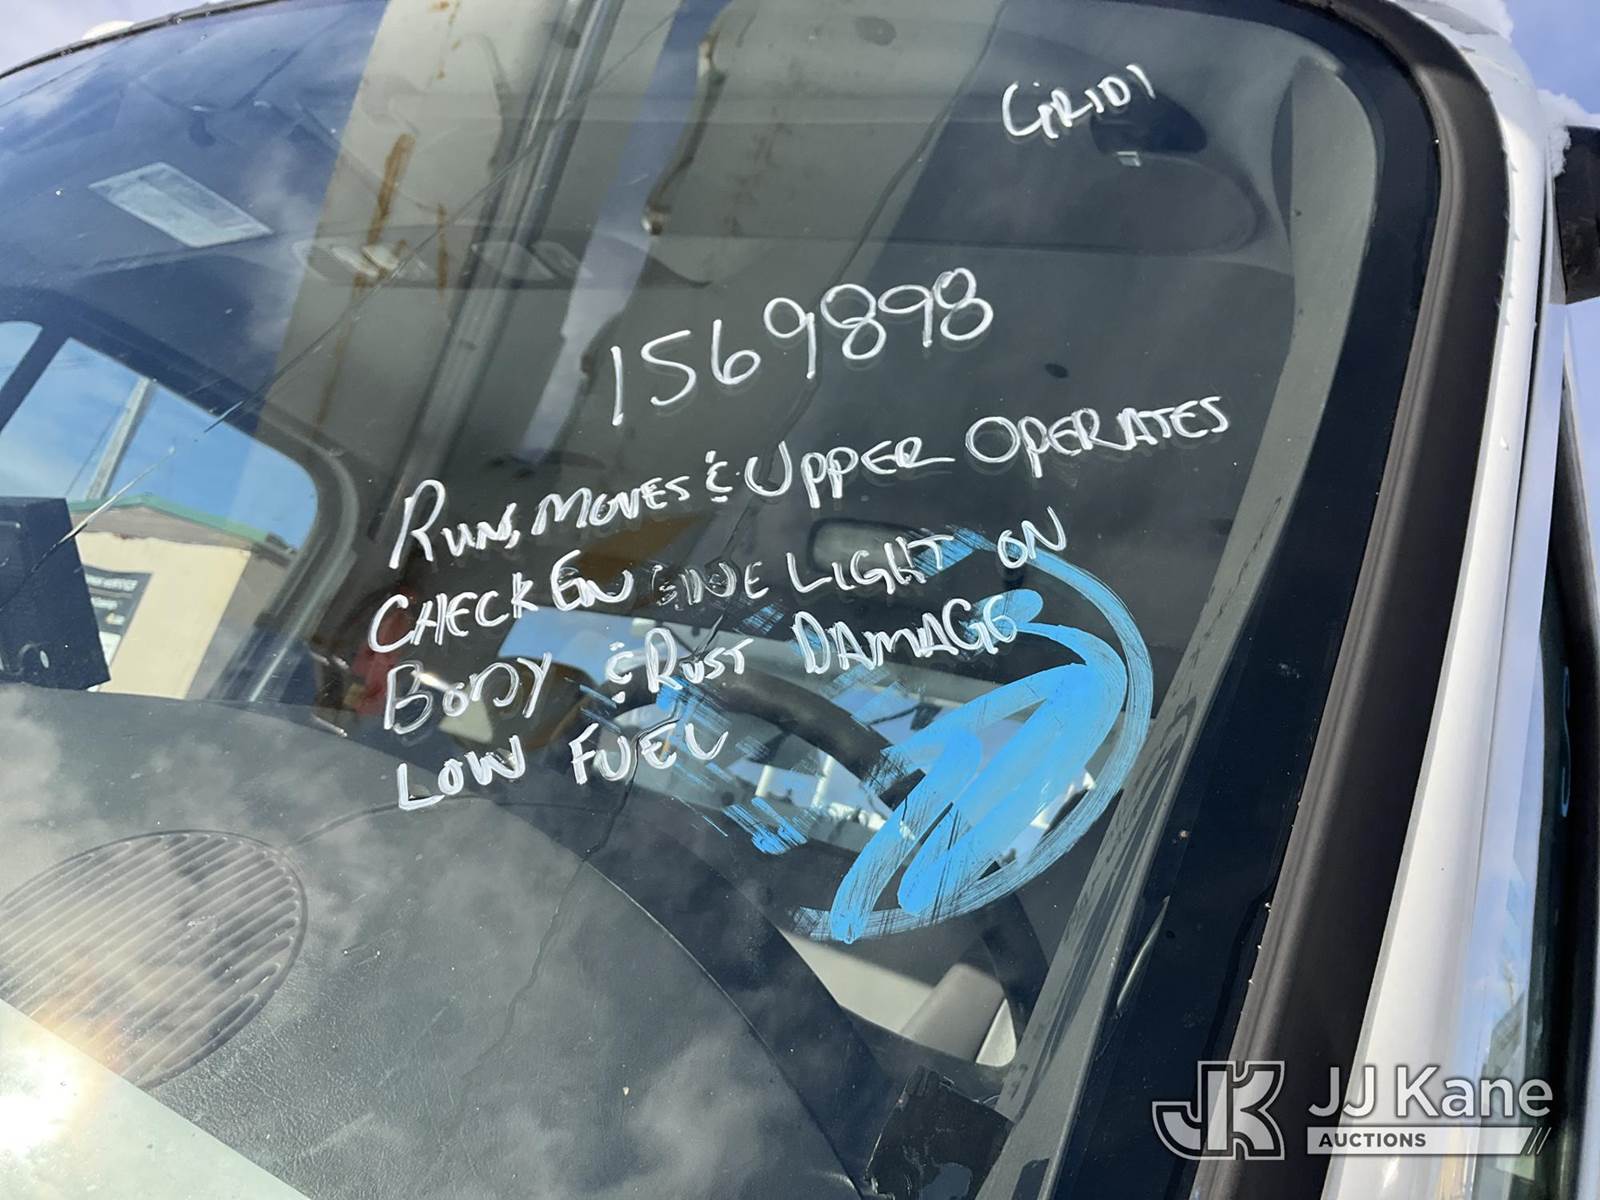 GRID1
1569898
RUNS, MOVES & UPPER OPERATES
CHECK ENGINE LIGHT ON
BODY & RUST DAMAGE
LOW FUEL
JK JJ Kane
AUCTIONS